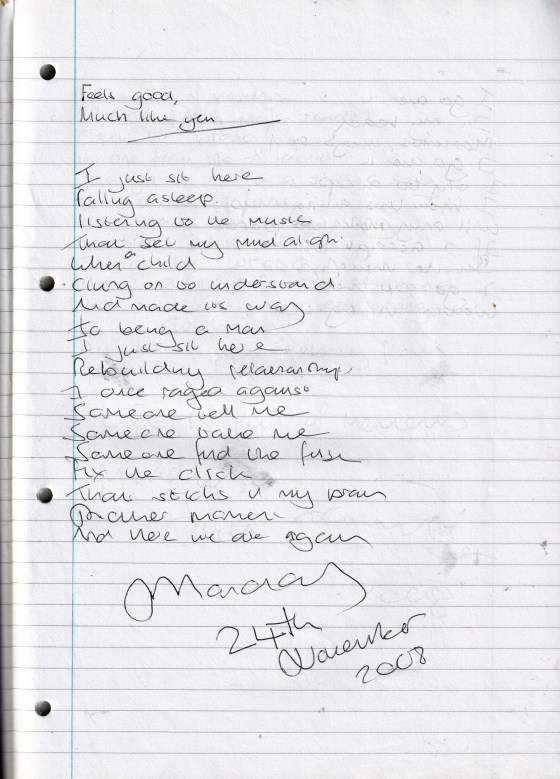 Feels good,
Much like you
I just sit here
Falling asleep.
listening to the music
That set my mind alight.
When a child
Clung on to understand
And made its way
To being a man
I just sit here
Rebuilding relationships
I once raged against
Someone tell me
Someone wake me
Someone find the fuse
Fix the click
That sticks in my brain
Another moment
And here we are again
Monday
24th
November
2008